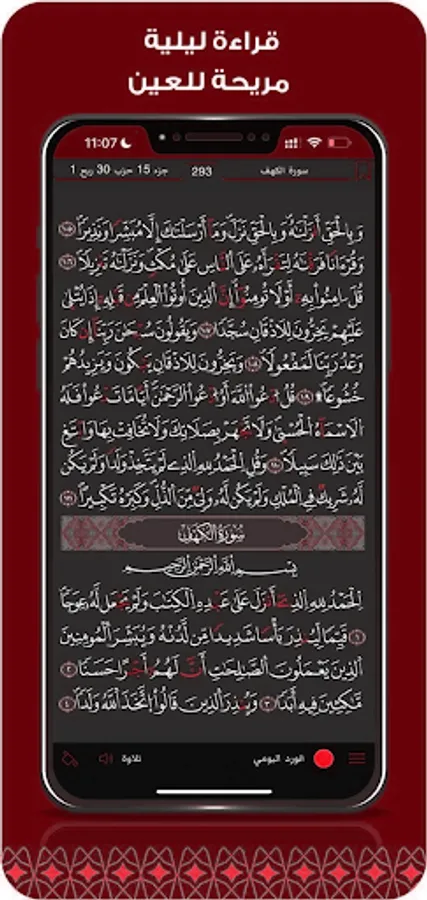 قراءة ليلية
مريحة للعين
11:07
سورة الكهف
293
جزء 15 حزب 30 ربع 1
وَبِالْحَقِّ أَنزَلْنَٰهُ وَبِالْحَقِّ نَزَلَ وَمَا أَرْسَلْنَٰكَ إِلَّا مُبَشِّرًا وَنَذِيرًا ١٠٥
وَقُرْءَانًا فَرَقْنَٰهُ لِتَقْرَأَهُ عَلَى النَّاسِ عَلَىٰ مُكْثٍ وَنَزَّلْنَٰهُ تَنزِيلًا ١٠٦
قُلْ ءَامِنُوا بِهِ أَوْ لَا تُومِنُوا إِنَّ الَّذِينَ أُوتُوا الْعِلْمَ مِن قَبْلِهِ إِذَا يُتْلَىٰ
عَلَيْهِمْ يَخِرُّونَ لِلْأَذْقَانِ سُجَّدًا ١٠٧ وَيَقُولُونَ سُبْحَٰنَ رَبِّنَا إِن كَانَ
وَعْدُ رَبِّنَا لَمَفْعُولًا ١٠٨ وَيَخِرُّونَ لِلْأَذْقَانِ يَبْكُونَ وَيَزِيدُهُمْ
خُشُوعًا ١٠٩ قُلُ ادْعُوا اللَّهَ أَوُ ادْعُوا الرَّحْمَٰنَ أَيًّا مَّا تَدْعُوا فَلَهُ
الْأَسْمَاءُ الْحُسْنَىٰ وَلَا تَجْهَرْ بِصَلَاتِكَ وَلَا تُخَافِتْ بِهَا وَابْتَغِ
بَيْنَ ذَٰلِكَ سَبِيلًا ١١٠ وَقُلِ الْحَمْدُ لِلَّهِ الَّذِي لَمْ يَتَّخِذْ وَلَدًا وَلَمْ يَكُن
لَّهُ شَرِيكٌ فِي الْمُلْكِ وَلَمْ يَكُن لَّهُ وَلِيٌّ مِّنَ الذُّلِّ وَكَبِّرْهُ تَكْبِيرًا ١١١
سُورَةُ الْكَهْفِ
بِسْمِ اللَّهِ الرَّحْمَٰنِ الرَّحِيمِ
الْحَمْدُ لِلَّهِ الَّذِي أَنزَلَ عَلَىٰ عَبْدِهِ الْكِتَٰبَ وَلَمْ يَجْعَل لَّهُ عِوَجًا
١ قَيِّمًا لِّيُنذِرَ بَأْسًا شَدِيدًا مِّن لَّدُنْهُ وَيُبَشِّرَ الْمُومِنِينَ
الَّذِينَ يَعْمَلُونَ الصَّٰلِحَٰتِ أَنَّ لَهُمْ أَجْرًا حَسَنًا ٢
مَّٰكِثِينَ فِيهِ أَبَدًا ٣ وَيُنذِرَ الَّذِينَ قَالُوا اتَّخَذَ اللَّهُ وَلَدًا ٤
الورد اليومي
تلاوة